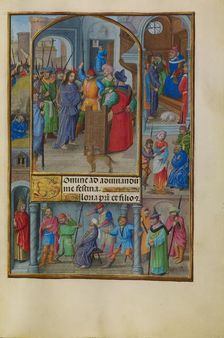 Domine ad adiuuandū
me festina.
loria pr̄i et filio ⁊